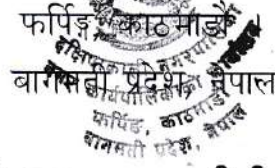 फर्पिङ्ग, काठमाडौं ।
बागमती प्रदेश, नेपाल
दक्षिणकाली नगरपालिका
कार्यपालिकाको
फर्पिङ, काठमाडौं
बागमती प्रदेश, नेपाल